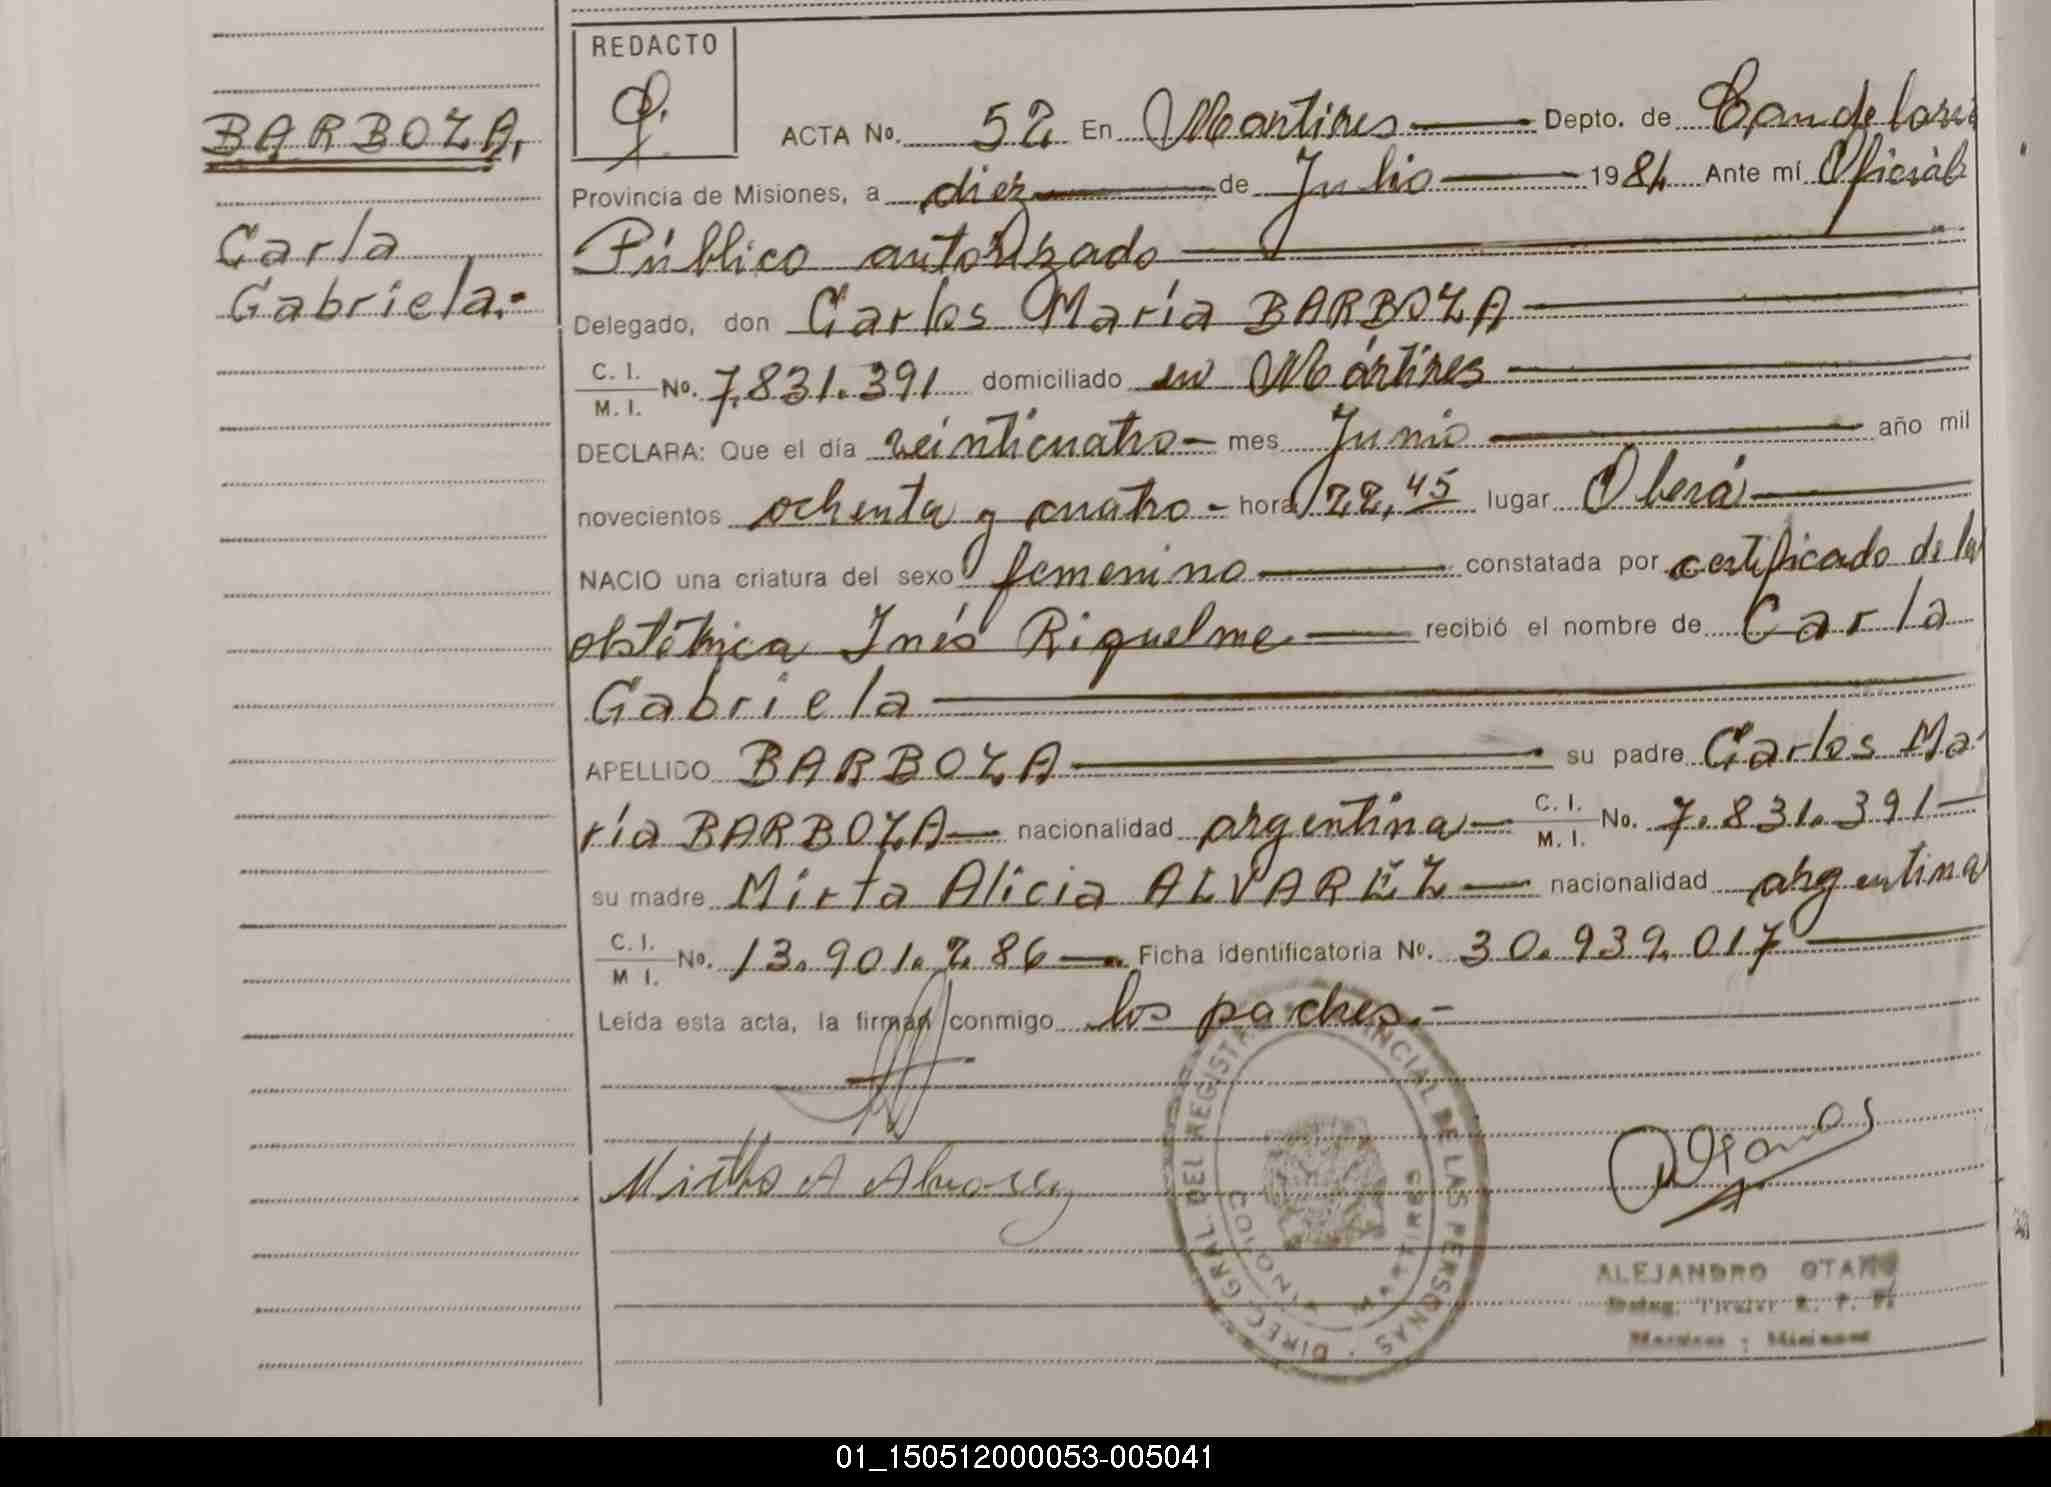 REDACTO
BARBOZA,
Carla
Gabriela.-
ACTA No. 52 En Mártires Depto. de Candelaria
Provincia de Misiones, a diez de Julio 1984 Ante mí Oficial
Público autorizado
Delegado, don Carlos María BARBOZA
C. I. M. I. No. 7.831.391 domiciliado en Mártires
DECLARA: Que el día veinticuatro mes Junio año mil
novecientos ochenta y cuatro hora 22,45 lugar Oberá
NACIO una criatura del sexo femenino constatada por certificado de la
obstétrica Inés Riquelme recibió el nombre de Carla
Gabriela
APELLIDO BARBOZA su padre Carlos Ma-
ría BARBOZA nacionalidad argentina C. I. M. I. No. 7.831.391
su madre Mirta Alicia ALVAREZ nacionalidad argentina
C. I. M I. No. 13.901.286 Ficha identificatoria No. 30.939.017
Leída esta acta, la firman conmigo los padres.-
DIREC. GRAL. DEL REGISTRO PROVINCIAL DE LAS PERSONAS
MARTIRES
Mirtha A Alvarez
ALEJANDRO OTAÑO
01_150512000053-005041